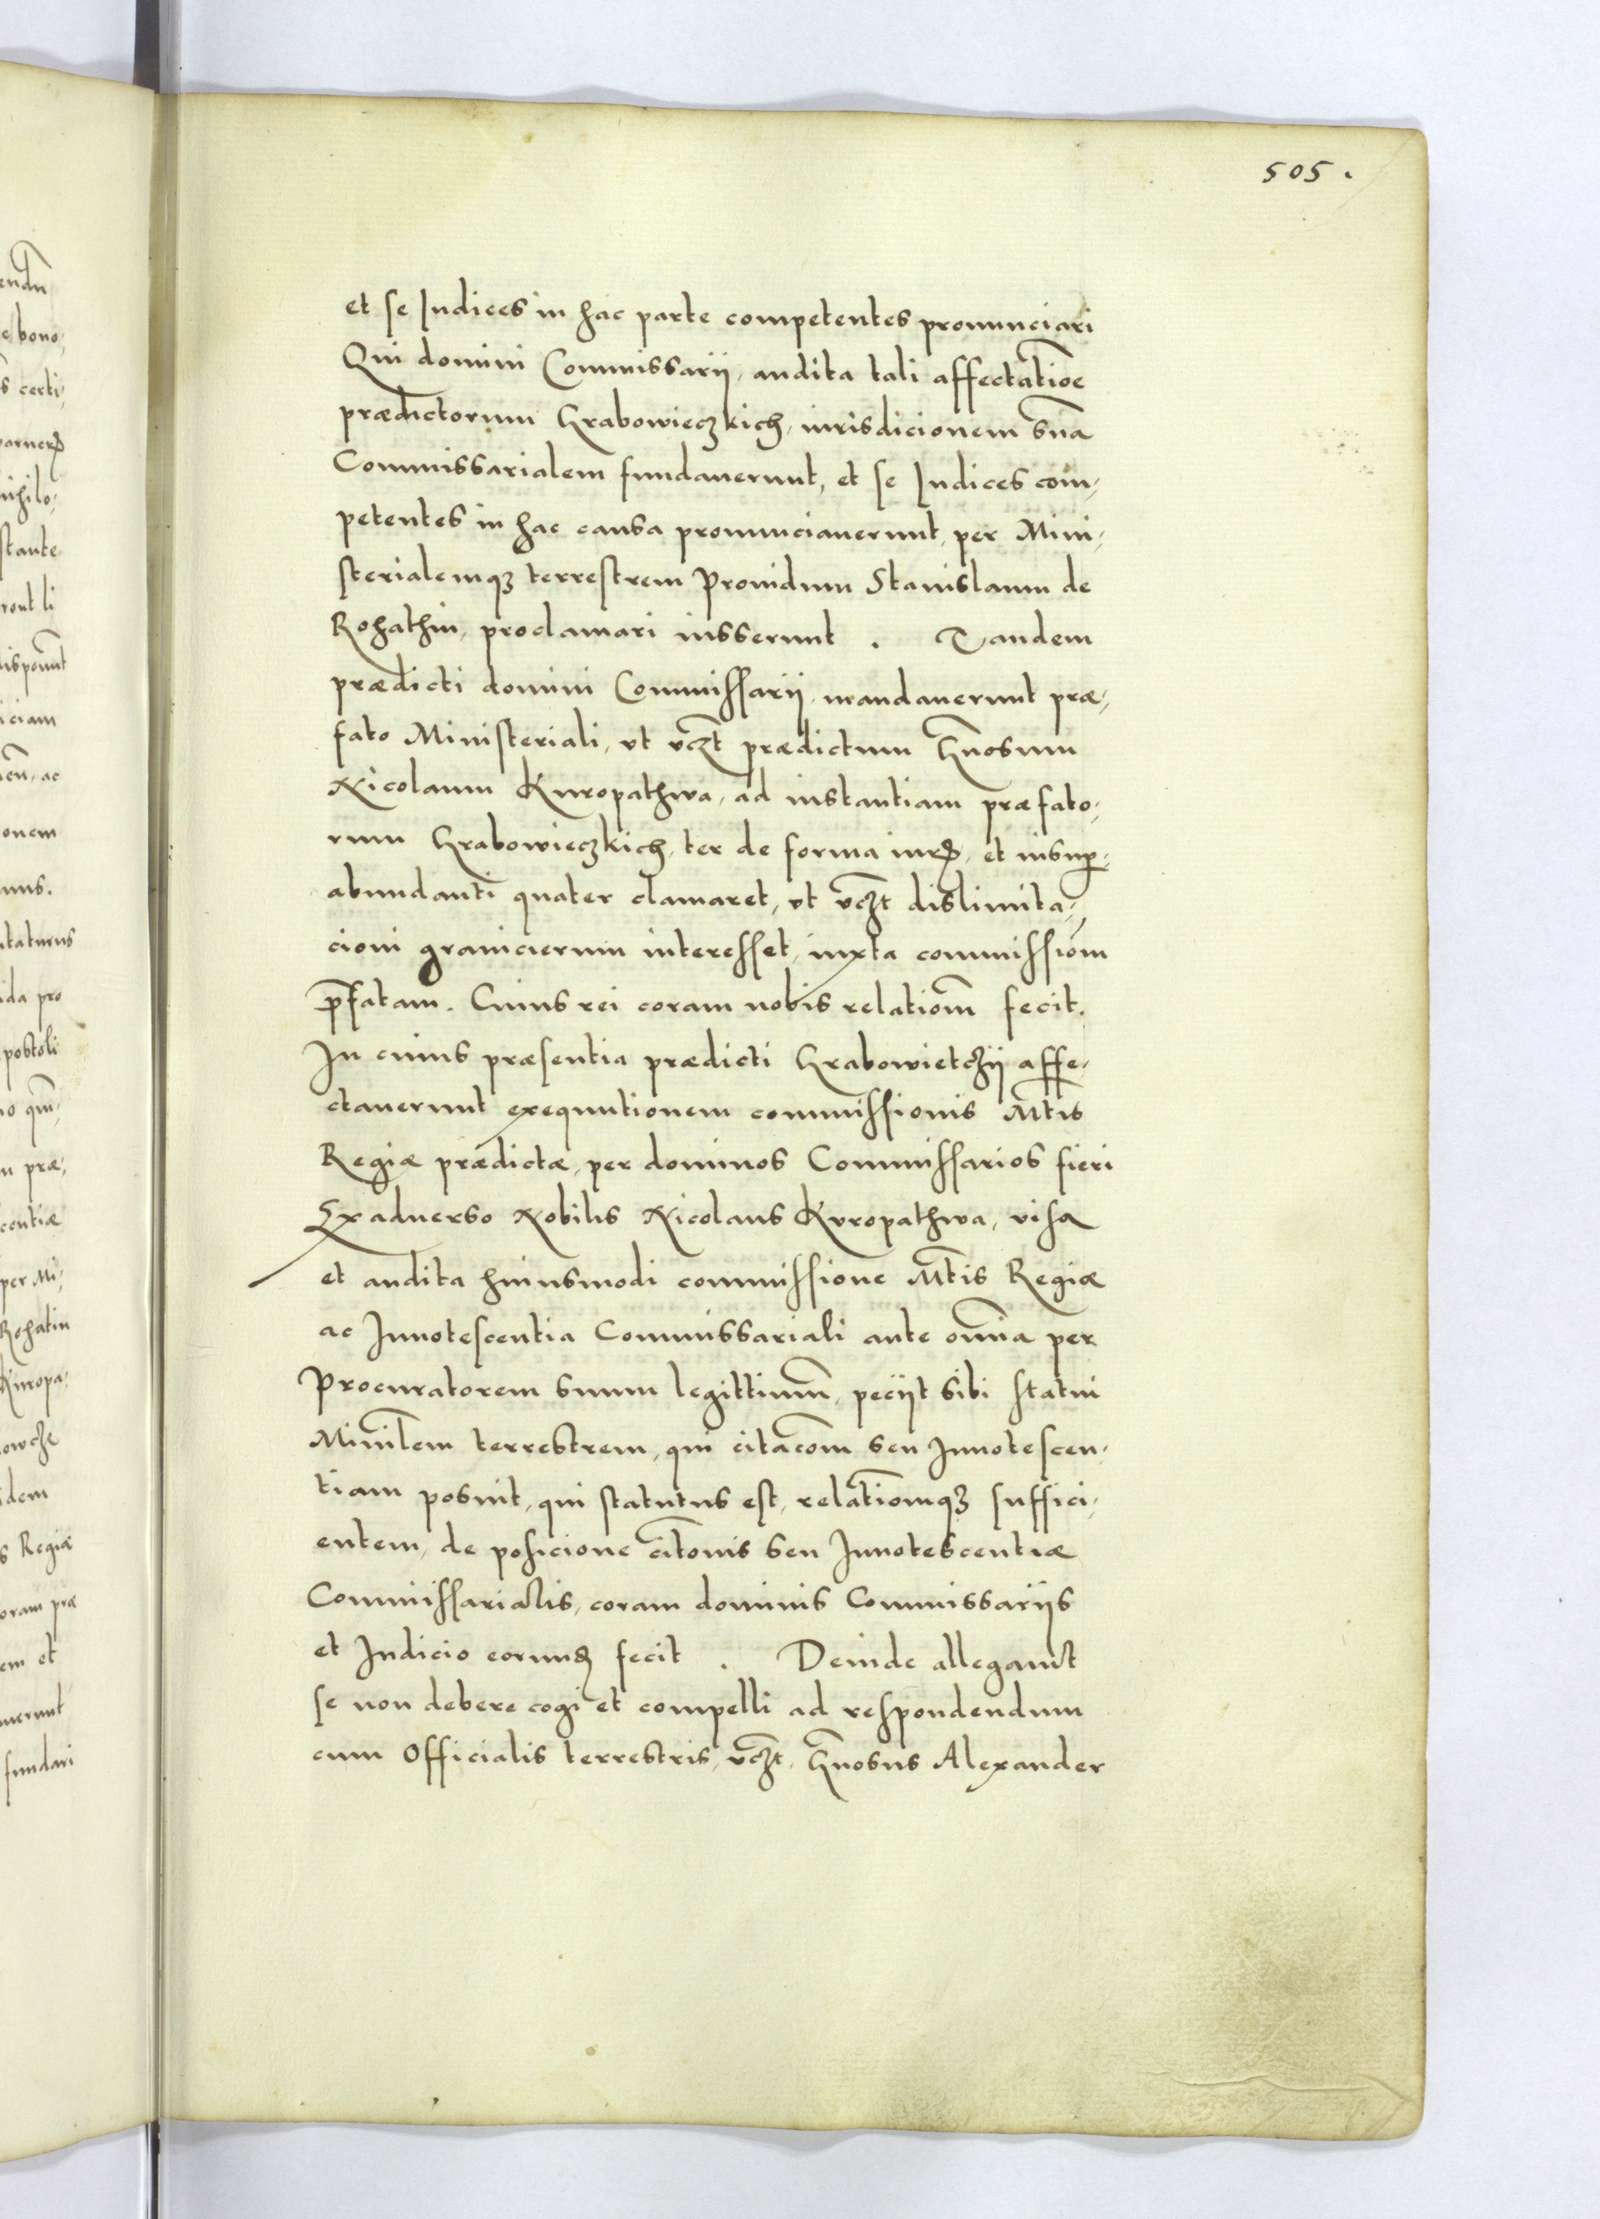 505.
et se Iudices in hac parte competentes pronunciari
Qui domini Commissarij, audita tali affectatiõe
prædictorum Hrabowieczkich, iurisdicionem suã
Commissarialem fundauerunt, et se Iudices com,
petentes in hac causa pronunciauerunt, per Mini,
sterialemqꝫ terrestrem Prouidum Stanislaum de
Rohathin, proclamari iusserunt. Tandem
prædicti domini Commissarij, mandauerunt præ,
fato Ministeriali, vt vcꝫt prædictum Gn̄osum
Nicolaum Kuropathwa, ad instantiam præfato,
rum Hrabowieczkich, ter de forma iurꝭ, et insuꝑ,
abundanti quater clamaret, vt vcꝫt dislimita,
cioni granicierum interesset, iuxta commissiom̄
p̄fatam. Cuius rei coram nobis relatiom̄ fecit.
In cuius præsentia prædicti Hrabowietczij affe,
ctauerunt exequutionem commissionis Mt̄is
Regiæ prædictæ, per dominos Commissarios fieri
Ex aduerso Nobilis Nicolaus Kuropathwa, visa
et audita huiusmodi commissione Mt̄is Regiæ
ac Innotescentia Commissariali ante om̄ia per
Procuratorem suum legittimum̄, pecijt sibi statui
Minīlem terrestrem, qui citacōm seu Innotescen,
tiam posuit, qui statutus est, relatiōmqꝫ suffici,
entem, de posicione citōnis seu Innotescentiæ
Commissarialis, coram dominis Commissarijs
et Iudicio eorumꝭ fecit. Deinde allegauit
se non debere cogi et compelli ad respondendum
cum Officialis terrestris, vcꝫt, Gn̄osus Alexander
endam̄
certi,
nihilo,
stante
disponunt̄
iciam
ac
onem
ida pro
postoli
m præ,
centiæ
per Mi,
Rohatin
Kuropa,
idem
s Regiæ
oram præ
em et
fundari